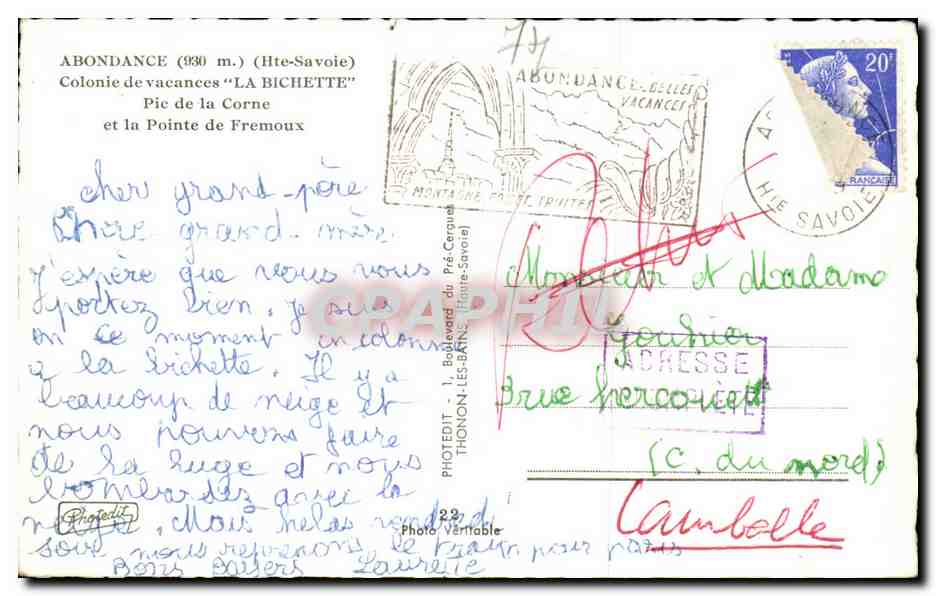 ABONDANCE (930 m.) (Hte-Savoie)
Colonie de vacances "LA BICHETTE"
Pic de la Corne
et la Pointe de Fremoux
cher grand-père
Chère grand-mère
J'espère que vous vous
portez bien. je suis
en ce moment en colonie
a la bichette. Il y a
beaucoup de neige et
nous pouvons faire
de la luge et nous
bombarder avec la
neige. Mais helas vendredi
soir nous reprenons le train pour paris
Bons Baisers Laurette
Photedit
22
Photo Véritable
PHOTEDIT - 1, Boulevard du Pré-Cergue
THONON-LES-BAINS (Haute-Savoie)
ABONDANCE BELLES
VACANCES
MONTAGNE TRUITES
HTE SAVOIE
20F
FRANÇAISE
Monsieur et Madame
3 rue
(C. du nord)
Lamballe
ADRESSE
CPAPHIL